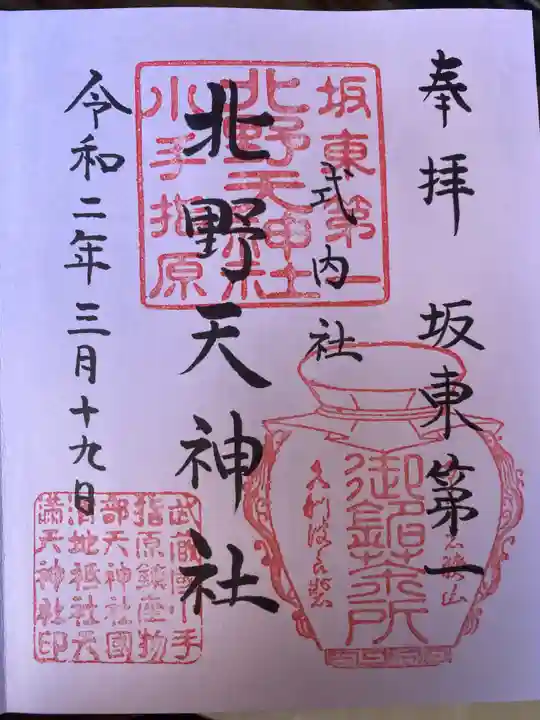 奉拝
坂東第一
式内社
北野天神社
令和二年三月十九日
坂東第一
北野天神社
小手指原
武蔵國小手
指原鎮座物
部天神社國
渭地祇社天
満天神社印